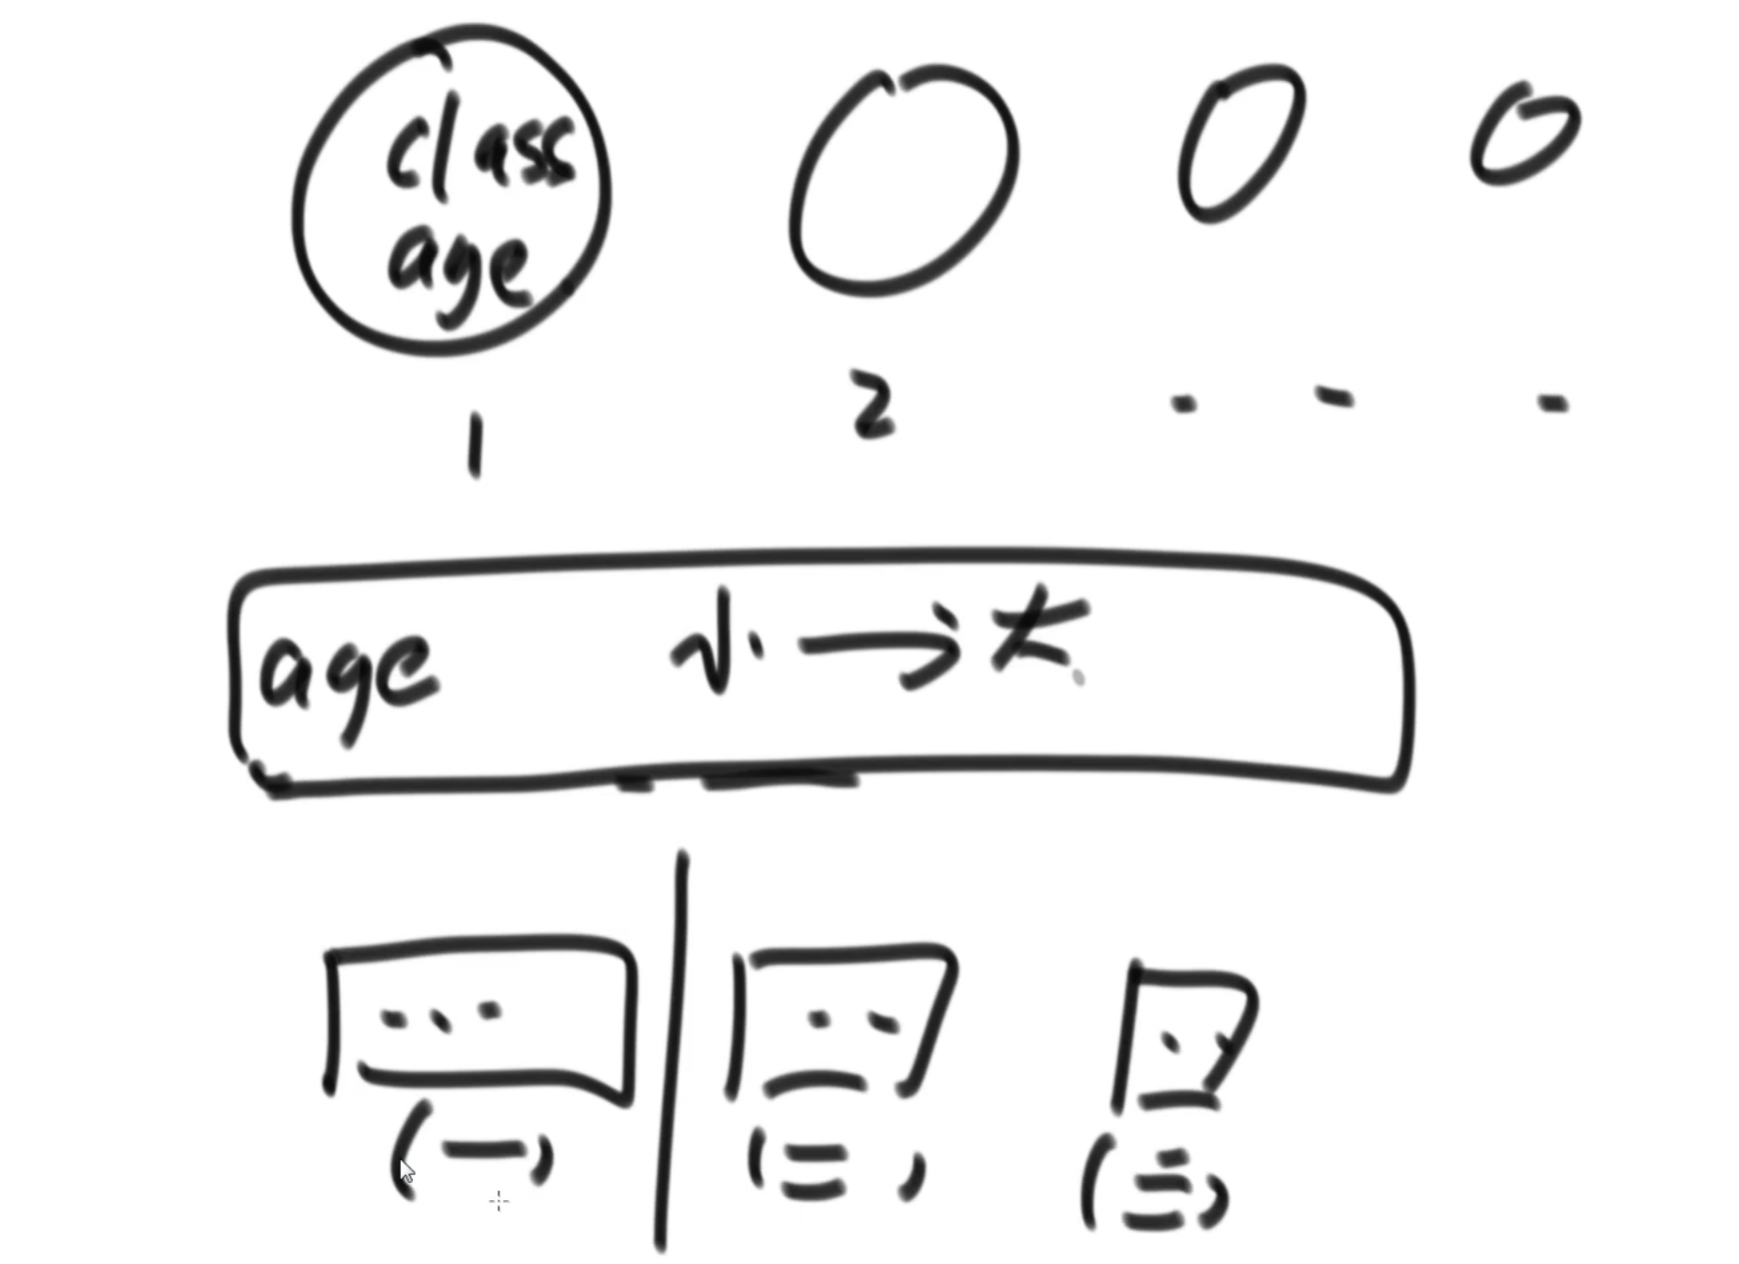 class
age
1 2 . - -
age 小 → 大
(一) (二) (三)